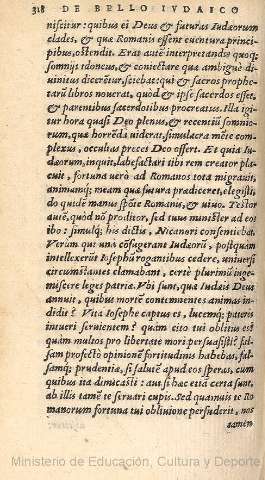 318 DE BELLO IVDAICO
niscitur: quibus ei Deus & futuras Iudæorum
clades, & quæ Romanis essent euentura princi-
pibus, ostendit. Erat autē interpretandis quoq;
somnijs idoneus, & coniectare quæ ambiguè di-
uinitùs dicerētur, sciebat: qui & sacros prophe-
tarū libros nouerat, quòd & ipse sacerdos esset,
& parentibus sacerdotibus procreatus. Illa igi-
tur hora quasi Deo plenus, & recentiū somnio-
rum, quæ horrēda viderat, simulacra mēte com-
plexus, occultas preces Deo offert. Et quia Iu-
dæorum, inquit, labefactari tibi rem creator pla-
cuit, fortuna verò ad Romanos tota migrauit,
animumq; meam quæ futura prædiceret, elegisti,
do quidē manus spōte Romanis, & viuo. Testor
autē, quòd nō proditor, sed tuus minister ad eos
ibo: simulq; his dictis, Nicanori consentiebat.
Verùm qui vnà cōfugerant Iudæorū, postquam
intellexerūt Iosephū rogantibus cedere, vniuersi
circumstantes clamabant, certè plurimū inge-
miscere leges patriæ. Vbi sunt, quæ Iudæis Deus
annuit, quibus mortē contemnentes animas in-
didit? Vita Iosephe captus es, lucemq; pateris
intueri seruientem? quàm citò tui oblitus es?
quàm multos pro libertate mori persuasisti? fal-
sam profectò opinionē fortitudinis habebas, fal-
samq; prudentiæ, si salutē apud eos speras, cum
quibus ita dimicasti: aut si hæc etiā certa sunt,
ab illis tamē te seruari cupis. Sed quanuis te Ro-
manorum fortuna tui obliuione persuderit, nos
tamen
Ministerio de Educación, Cultura y Deporte